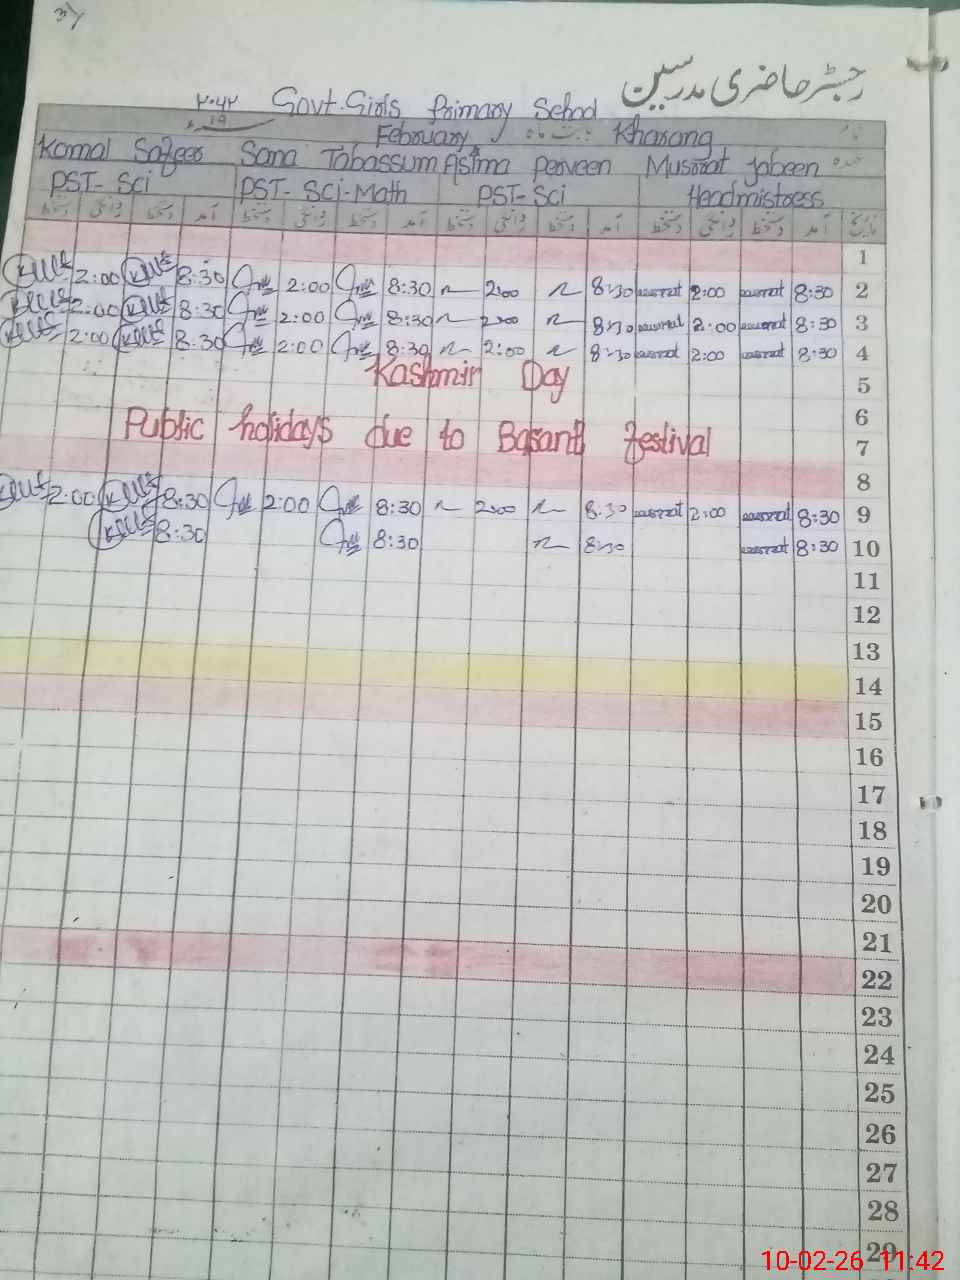 31
رجسٹر حاضری مدرسین
Govt. Girls Primary School
February بابت ماہ Kharang
Komal Safeer Sana Tabassum Asima Perveen Musrrat Jabeen
PST- Sci PST- Sci-Math PST-Sci Headmistress
دستخط روانگی دستخط آمد دستخط روانگی دستخط آمد دستخط روانگی دستخط آمد دستخط روانگی دستخط آمد تاریخ
1
2:00 8:30 2:00 8:30 2:00 8:30 musrrat 2:00 musrrat 8:30 2
2:00 8:30 2:00 8:30 2:00 8:30 musrrat 2:00 musrrat 8:30 3
2:00 8:30 2:00 8:30 2:00 8:30 musrrat 2:00 musrrat 8:30 4
Kashmir Day 5
6
Public holidays due to Basant festival 7
8
2:00 8:30 2:00 8:30 2:00 8:30 musrrat 2:00 musrrat 8:30 9
8:30 8:30 8:30 musrrat 8:30 10
11
12
13
14
15
16
17
18
19
20
21
22
23
24
25
26
27
28
29
10-02-26 11:42